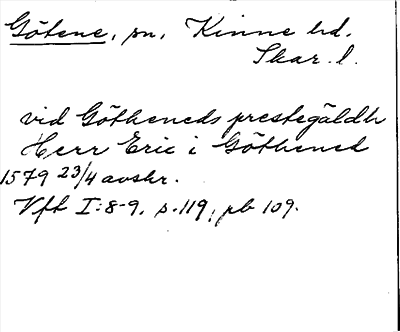 Götene, sn, Kinne hd.
Skar. l.
vid Götheneds prestegäldh
Herr Eric i Göthened
1579 23/4 avskr.
Vft I:8-9, s.119, pb 109.